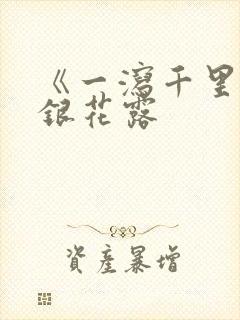 《一瀉千里
銀花露
資產暴增